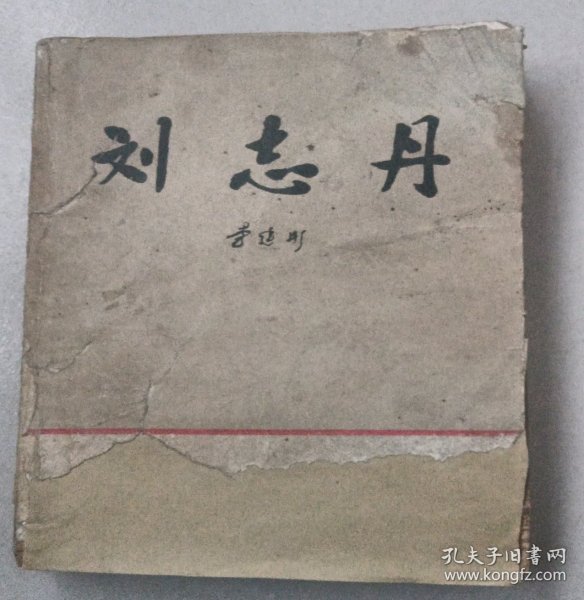 刘志丹
李建彤
孔夫子旧书网
www.kongfz.com